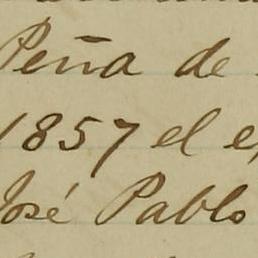 Peña de
1857 el
José Pablo